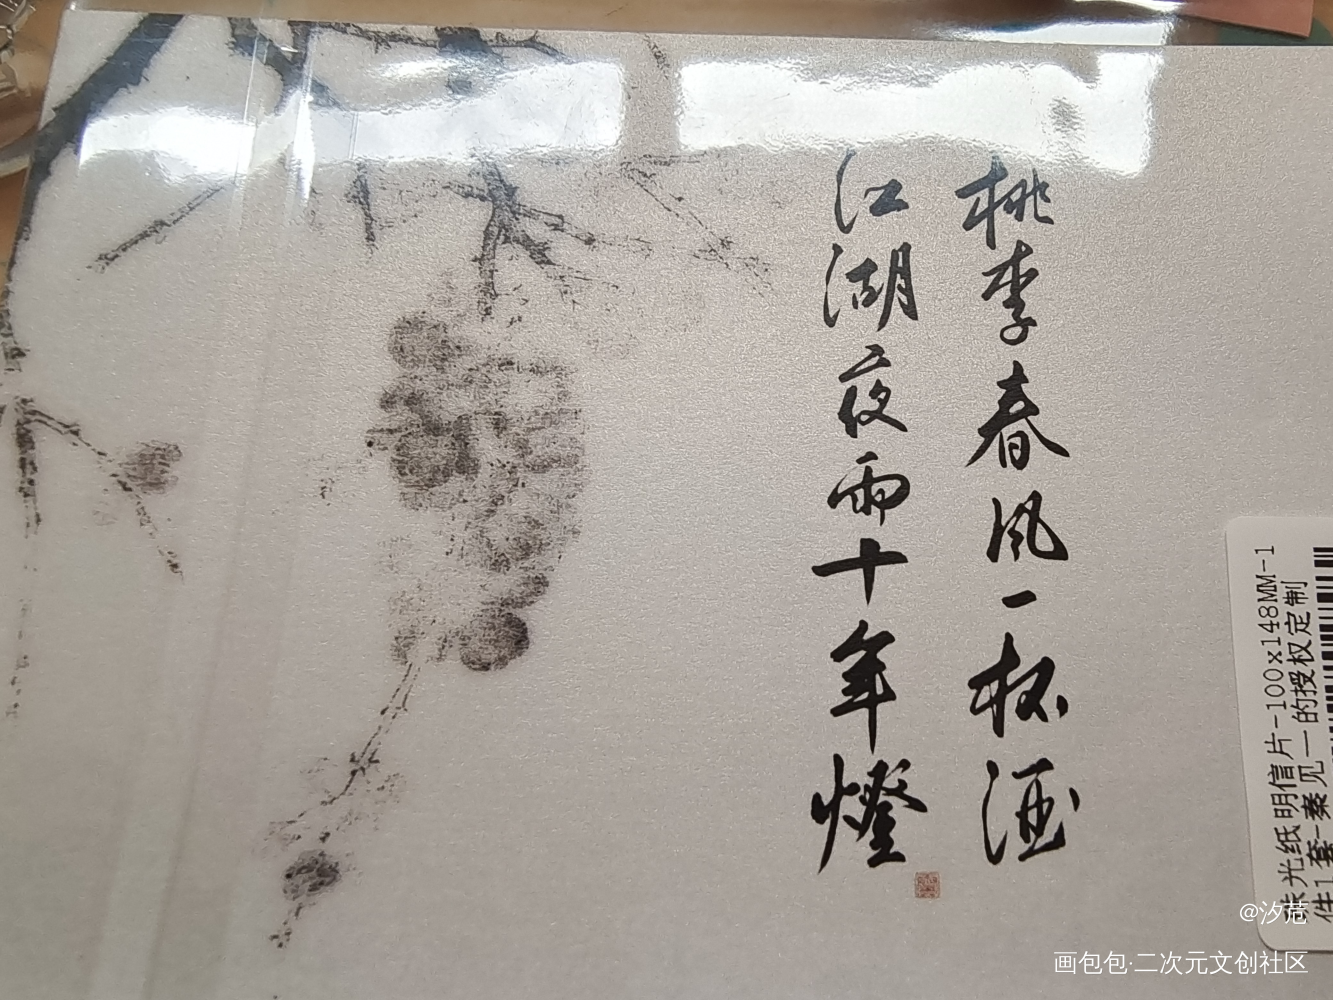 桃李春风一杯酒
江湖夜雨十年燈
珠光纸明信片-100x148MM-1
件1套-秦见一的授权定制
@汐范
画包包·二次元文创社区